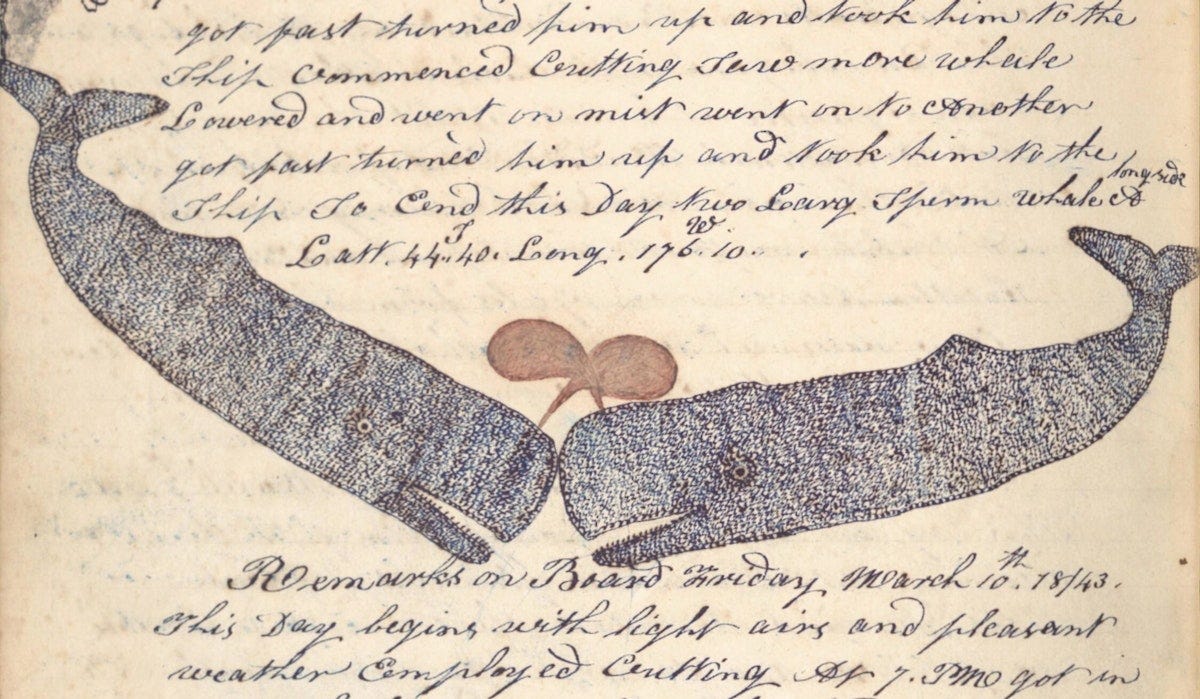 got fast turned him up and took him to the
Ship Commenced Cutting Saw more whale
Lowered and went on mist went on to Another
got fast turned him up and took him to the
long side
Ship So Ends this Day two Larg Sperm whale
S W
Latt. 44.40. Long. 176.10.
Remarks on Board Friday March 10th. 1843.
This Day begins with light airs and pleasant
weather Employed Cutting At 7. PM got in